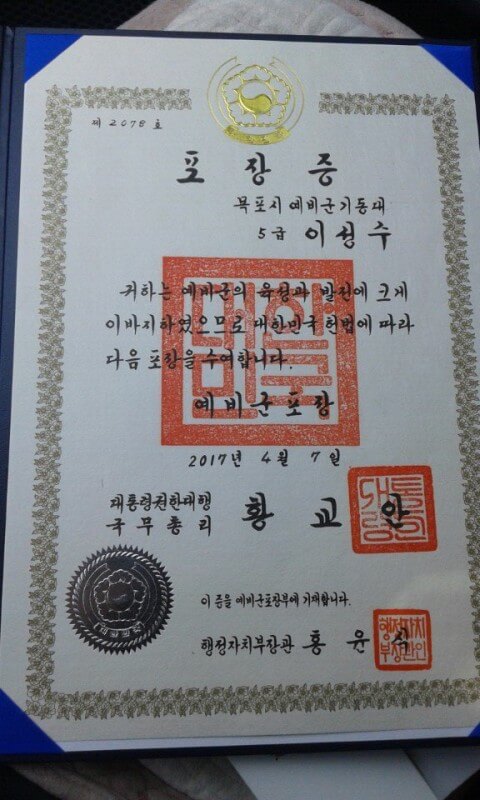 제 2078 호
포장증
목포시예비군기동대
5급 이성수
귀하는 예비군의 육성과 발전에 크게
이바지하였으므로 대한민국 헌법에 따라
다음 포장을 수여합니다.
예비군포장
2017년 4월 7일
대통령권한대행
국무총리 황교안
이 증을 예비군포장부에 기재합니다.
행정자치부장관 홍윤식
행정자치
부장관인